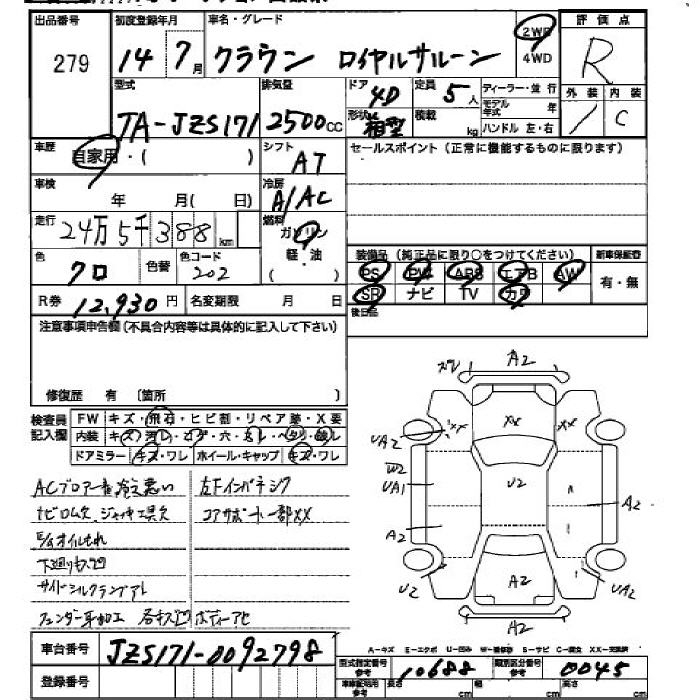 出品番号 初度登録年月 車名・グレード 2WD 評価点
279 14年 7月 クラウン ロイヤルサルーン 4WD R
型式 排気量 ドア 4D 定員 5人 ディーラー・並行 外装 内装
TA-JZS171 2500cc 形状 箱型 積載 kg モデル年式 年 ハンドル 左・右 / C
車歴 自家用・( ) シフト AT セールスポイント(正常に機能するものに限ります)
車検 年 月( 日) 冷房 A/AC
走行 24万5千388km 燃料 ガソリン
色 クロ 色替 色コード 202 軽・油 装備品(純正品に限り○をつけてください) 新車保証書
PS PW ABS エアB AW 有・無
R券 12,930円 名変期限 月 日 SR ナビ TV カワ
注意事項申告欄(不具合内容等は具体的に記入して下さい) 後日品
修復歴 有 〔箇所 〕
検査員 FW キズ・飛石・ヒビ割・リペア跡・X要
記入欄 内装
ドアミラー キズ・ワレ ホイール・キャップ キズ・ワレ
A2
XX XX XX
UA2
W2
UA1 U2 A2
A2
U2 A2 UA2
A2
左下インパネシク
コアサポート一部XX
下廻りキズ凹
フェンダー耳加工 各キズ凹 ボディーアセ
A-キズ E-エクボ U-凹み W-補修跡 S-サビ C-腐食 XX-交換済
車台番号 JZS171-0092798 型式指定番号 参考 10688 類別区分番号 参考 0045
登録番号 車庫証明用 参考 長さ cm 幅 cm 高さ cm